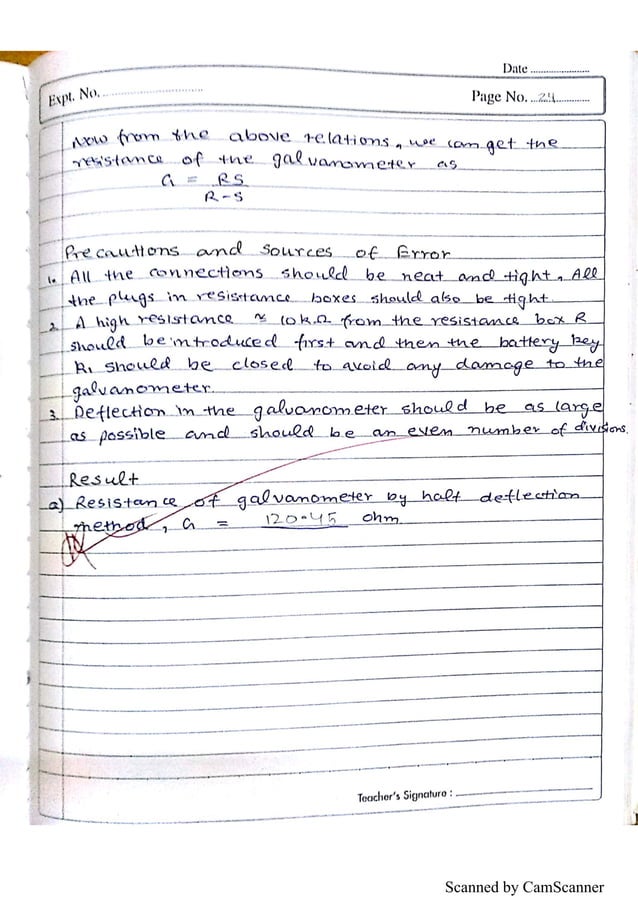 Date ......................
Expt. No. ..................................
Page No. ...24............
Now from the above relations, we can get the
resistance of the galvanometer as
G = RS
R-S
Precautions and Sources of Error
1. All the connections should be neat and tight, All
the plugs in resistance boxes should also be tight.
2. A high resistance ≈ 10kΩ from the resistance box R
should be introduced first and then the battery key
K₁ should be closed to avoid any damage to the
galvanometer.
3. Deflection in the galvanometer should be as large
as possible and should be an even number of divisions.
Result
a) Resistance of galvanometer by half deflection
method, G = 120.45 ohm
Teacher's Signature :
Scanned by CamScanner